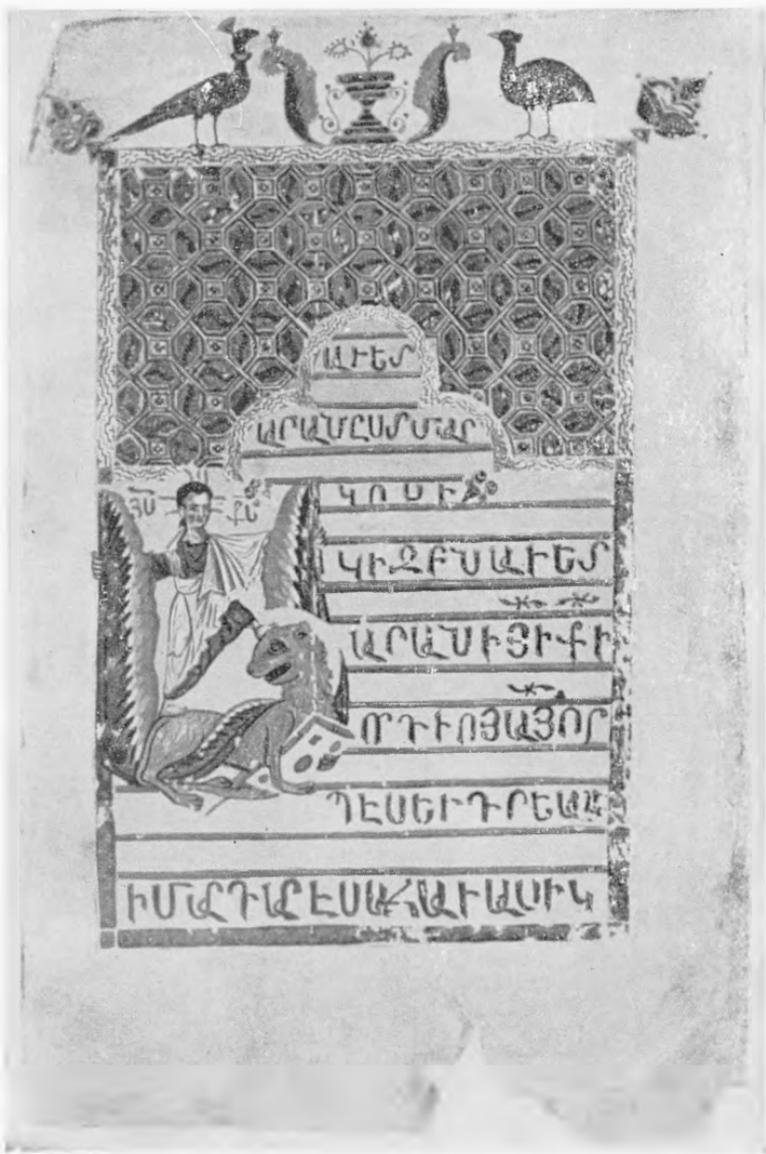 ԱՒԵՏ
ԱՐԱՆԸՍՏՄԱՐ
ԿՈՍԻ
ՅՍ ՔՍ
ԿԻԶԲՆԱՒԵՏ
ԱՐԱՆԻՅԻՔԻ
ՈՐԴՒՈՅԱՅՈՐ
ՊԷՍԵՒԳՐԵԱԼ
ԻՄԱՐԳԱՐԷՍԱՀԱՒԱՍԻԿ